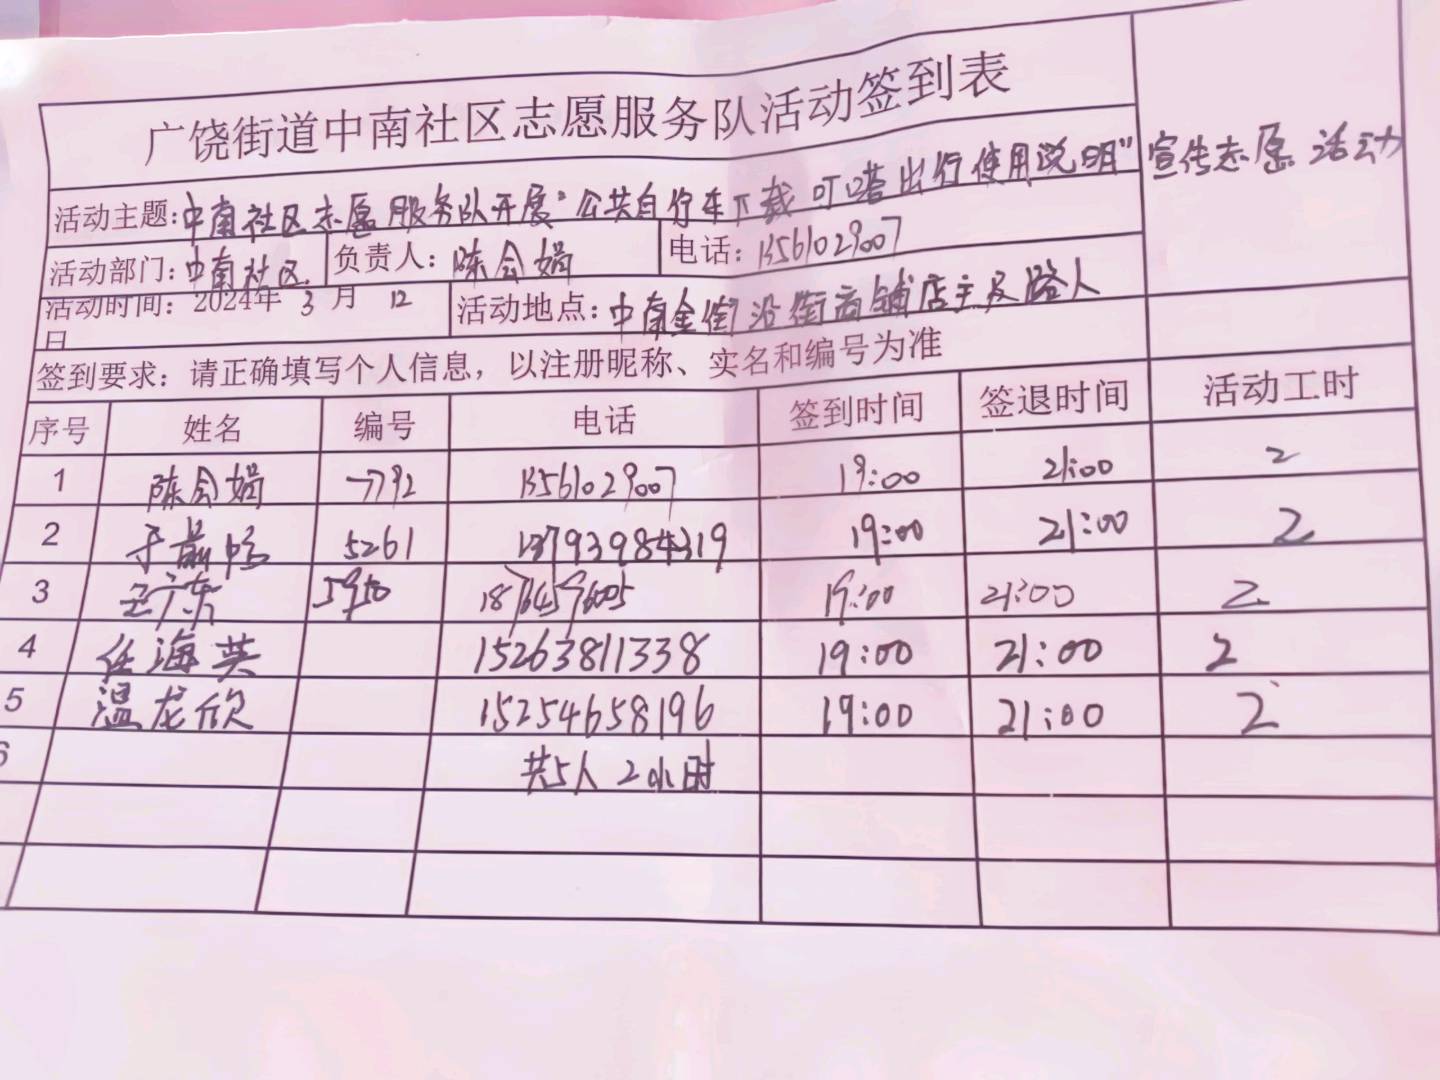 广饶街道中南社区志愿服务队活动签到表
活动主题:中南社区志愿服务队开展"公共自行车下载叮嗒出行使用说明"宣传志愿活动
活动部门:中南社区 负责人:陈会娟 电话:13561029007
活动时间:2024年 3 月 12
日 活动地点:中南金街沿街商铺店主及路人
签到要求:请正确填写个人信息,以注册昵称、实名和编号为准
序号 姓名 编号 电话 签到时间 签退时间 活动工时
1 陈会娟 13561029007 19:00 21:00 2
2 于 5261 13793984319 19:00 21:00 2
3 王广东 5950 18764596005 19:00 21:00 2
4 任海英 15263811338 19:00 21:00 2
5 温龙欣 15254658196 19:00 21:00 2
6 共5人 2小时